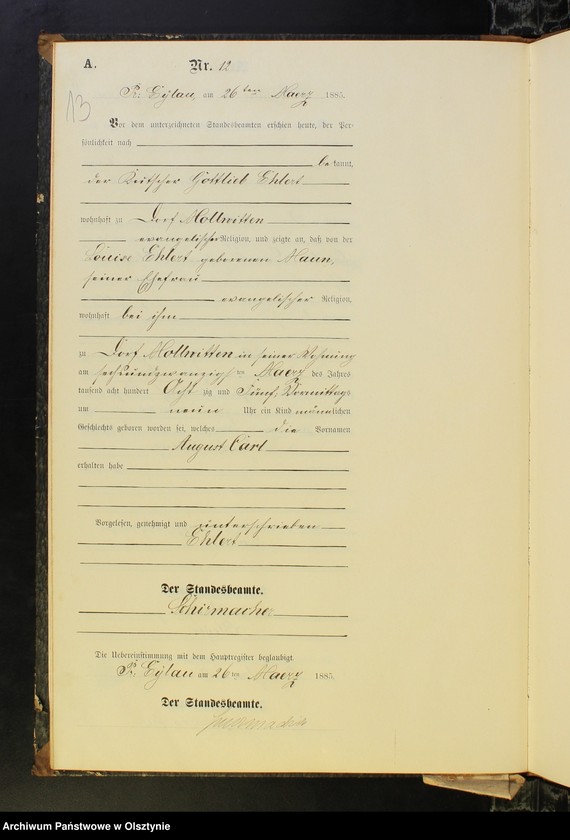 A.
Nr. 12
13
Pr. Eylau, am 26ten Maerz 1885.
Vor dem unterzeichneten Standesbeamten erschien heute, der Per-
sönlichkeit nach
bekannt,
der Kutscher Gottlieb Ehlert
wohnhaft zu Dorf Mollwitten
evangelischer Religion, und zeigte an, daß von der
Louise Ehlert geborenen Naun,
seiner Ehefrau
evangelischer Religion,
wohnhaft bei ihm
zu Dorf Mollwitten in seiner Wohnung
am sechsundzwanzigsten Maerz des Jahres
tausend acht hundert Acht zig und Fünf, Vormittags
um neun Uhr ein Kind männlichen
Geschlechts geboren worden sei, welches die Vornamen
August Carl
erhalten habe
Vorgelesen, genehmigt und unterschrieben
Ehlert
Der Standesbeamte.
Schirmacher
Die Uebereinstimmung mit dem Hauptregister beglaubigt.
Pr. Eylau am 26ten Maerz 1885.
Der Standesbeamte.
Schirmacher
Archiwum Państwowe w Olsztynie